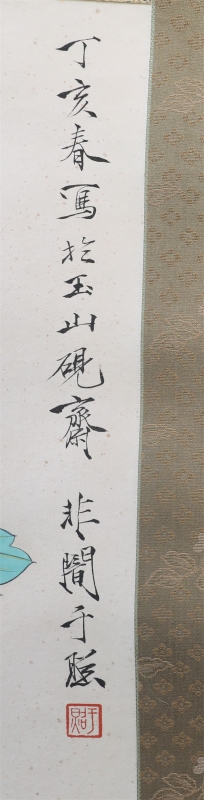 丁亥春寫於玉山硯齋 非闇于照